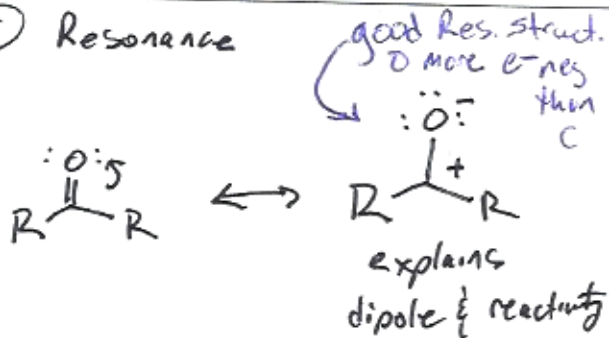 Resonance
good Res. struct.
O more e⁻neg
than
C
:O:
R R
↔
:Ö:⁻
+
R R
explains
dipole & reactivity